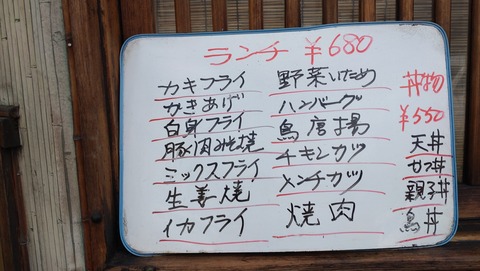 ランチ ¥680
カキフライ
かきあげ
白身フライ
豚肉みそ焼
ミックスフライ
生姜焼
イカフライ
野菜いため
ハンバーグ
鳥唐揚
チキンカツ
メンチカツ
焼肉
丼物
¥550
天丼
カツ丼
親子丼
鳥丼